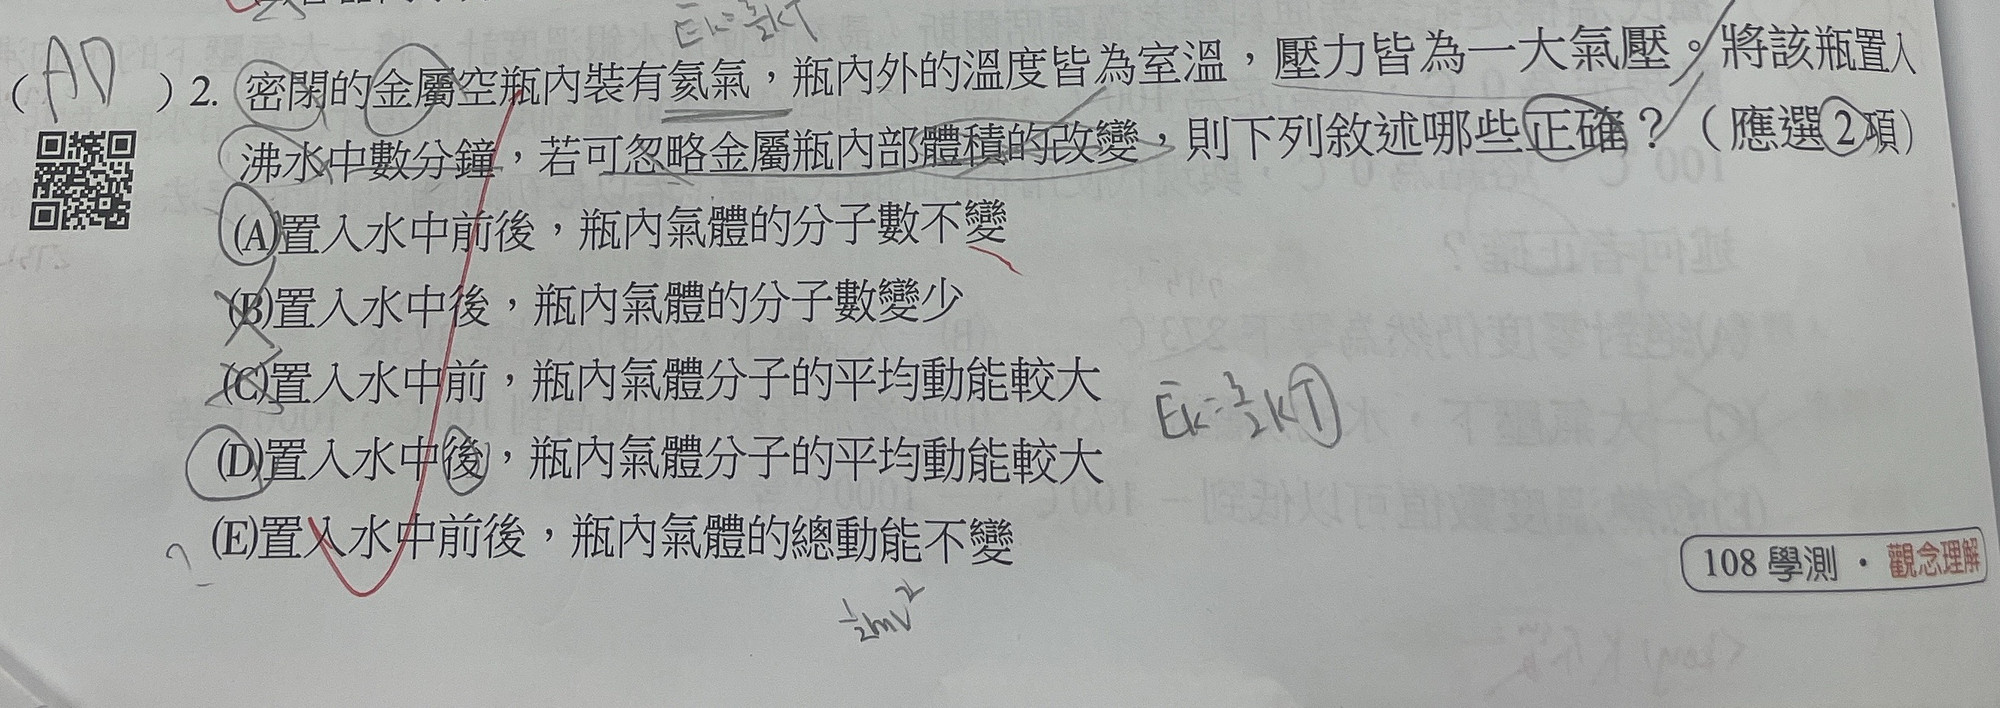 Ēk=3/2kT
(AD)2. 密閉的金屬空瓶內裝有氦氣，瓶內外的溫度皆為室溫，壓力皆為一大氣壓。將該瓶置入
沸水中數分鐘，若可忽略金屬瓶內部體積的改變，則下列敘述哪些正確？（應選2項）
(A)置入水中前後，瓶內氣體的分子數不變
(B)置入水中後，瓶內氣體的分子數變少
(C)置入水中前，瓶內氣體分子的平均動能較大
Ēk=3/2kT
(D)置入水中後，瓶內氣體分子的平均動能較大
? (E)置入水中前後，瓶內氣體的總動能不變
108 學測・觀念理解
1/2mv²